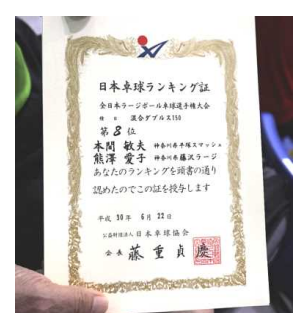 日本卓球ランキング証
全日本ラージボール卓球選手権大会
種目 混合ダブルス150
第8位
本間 敏夫 神奈川県平塚スマッシュ
熊澤 愛子 神奈川県藤沢ラージ
あなたのランキングを頭書の通り
認めたのでこの証を授与します
平成30年 6月 22日
公益財団法人 日本卓球協会
会長 藤重貞慶